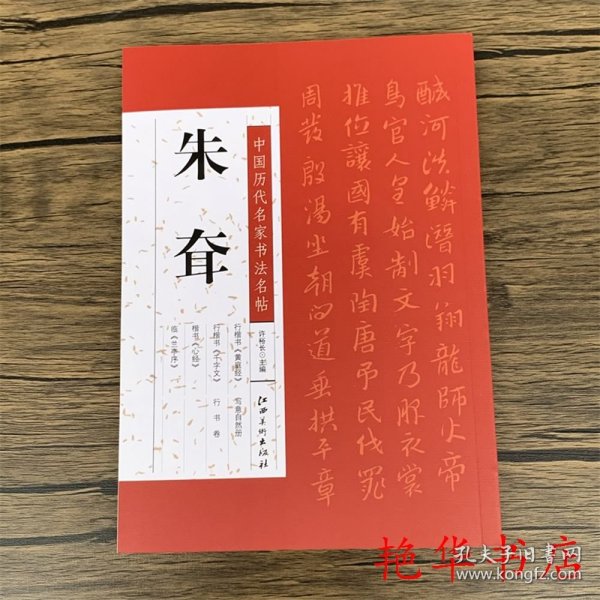 鹹河淡鱗潛羽翔龍師火帝
鳥官人皇始制文字乃服衣裳
推位讓國有虞陶唐弔民伐罪
周發殷湯坐朝問道垂拱平章
中国历代名家书法名帖
朱耷
许裕长○主编
行楷书《黄庭经》 写意自然册
行楷书《千字文》 行书卷
楷书《心经》
临《兰亭序》
江西美術出版社
艳华书店
孔夫子旧书网
www.kongfz.com